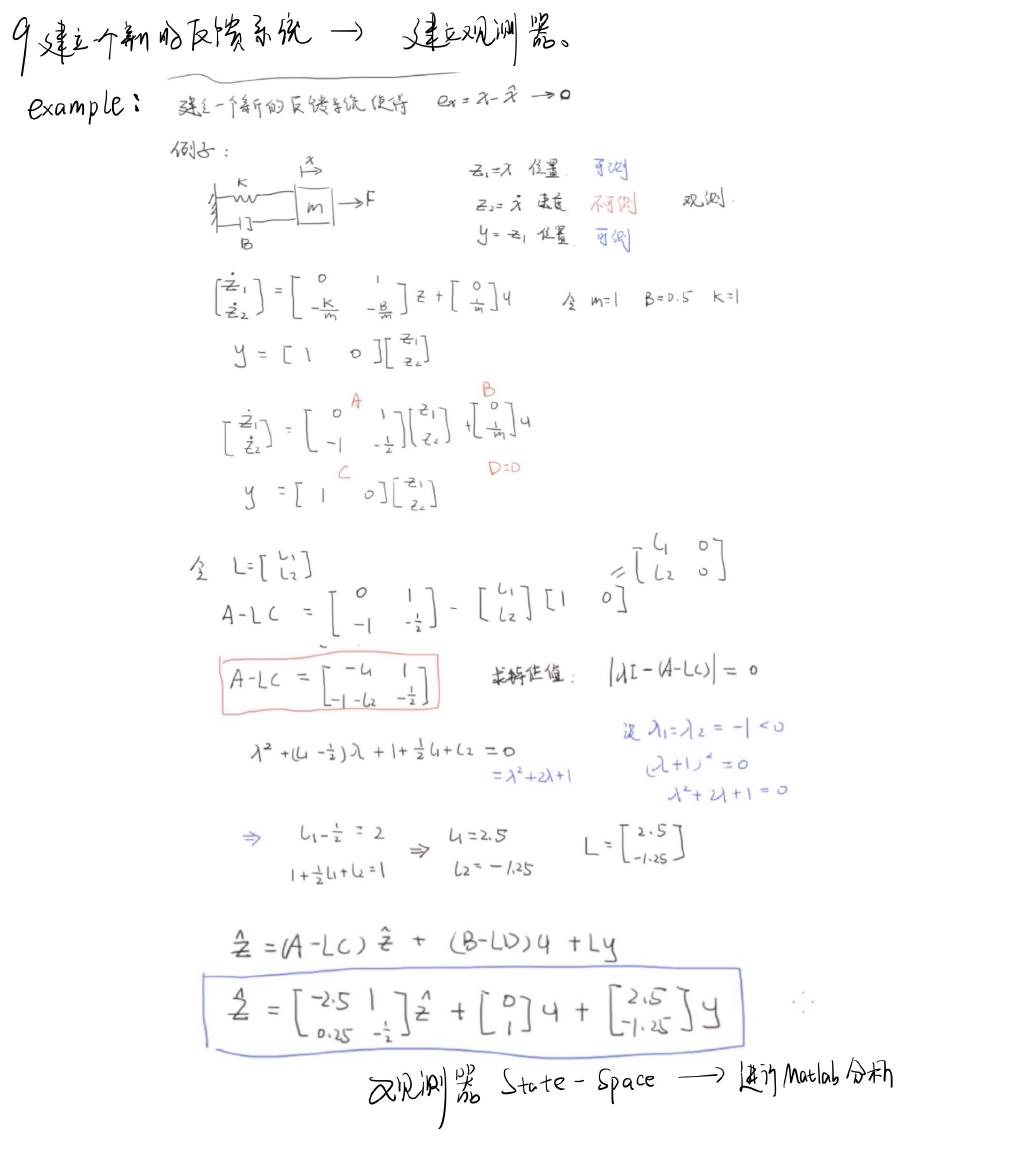 9 建立一个新的反馈系统 → 建立观测器。
example: 建立一个新的反馈系统 使得 eₓ = x - x̂ → 0
例子：
x
K
m
→ F
B
z₁ = x 位置 可测
z₂ = ẋ 速度 不可测 观测.
y = z₁ 位置 可测
[ż₁; ż₂] = [0 1; -K/m -B/m] z + [0; 1/m] u 令 m=1 B=0.5 K=1
y = [1 0][z₁; z₂]
A B
[ż₁; ż₂] = [0 1; -1 -1/2][z₁; z₂] + [0; 1/m] u
C D=0
y = [1 0][z₁; z₂]
令 L = [L₁; L₂]
= [L₁ 0; L₂ 0]
A-LC = [0 1; -1 -1/2] - [L₁; L₂][1 0]
A-LC = [-L₁ 1; -1-L₂ -1/2] 求特征值: |λI-(A-LC)| = 0
λ² + (L₁ - 1/2)λ + 1 + 1/2 L₁ + L₂ = 0
= λ²+2λ+1
设 λ₁=λ₂ = -1 < 0
(λ+1)² = 0
λ² + 2λ + 1 = 0
⇒ L₁ - 1/2 = 2 ⇒ L₁ = 2.5 L = [2.5; -1.25]
1 + 1/2 L₁ + L₂ = 1 L₂ = -1.25
ẑ = (A-LC) ẑ + (B-LD) u + Ly
ẑ = [-2.5 1; 0.25 -1/2] ẑ + [0; 1] u + [2.5; -1.25] y
观测器 State-Space → 进行 Matlab 分析